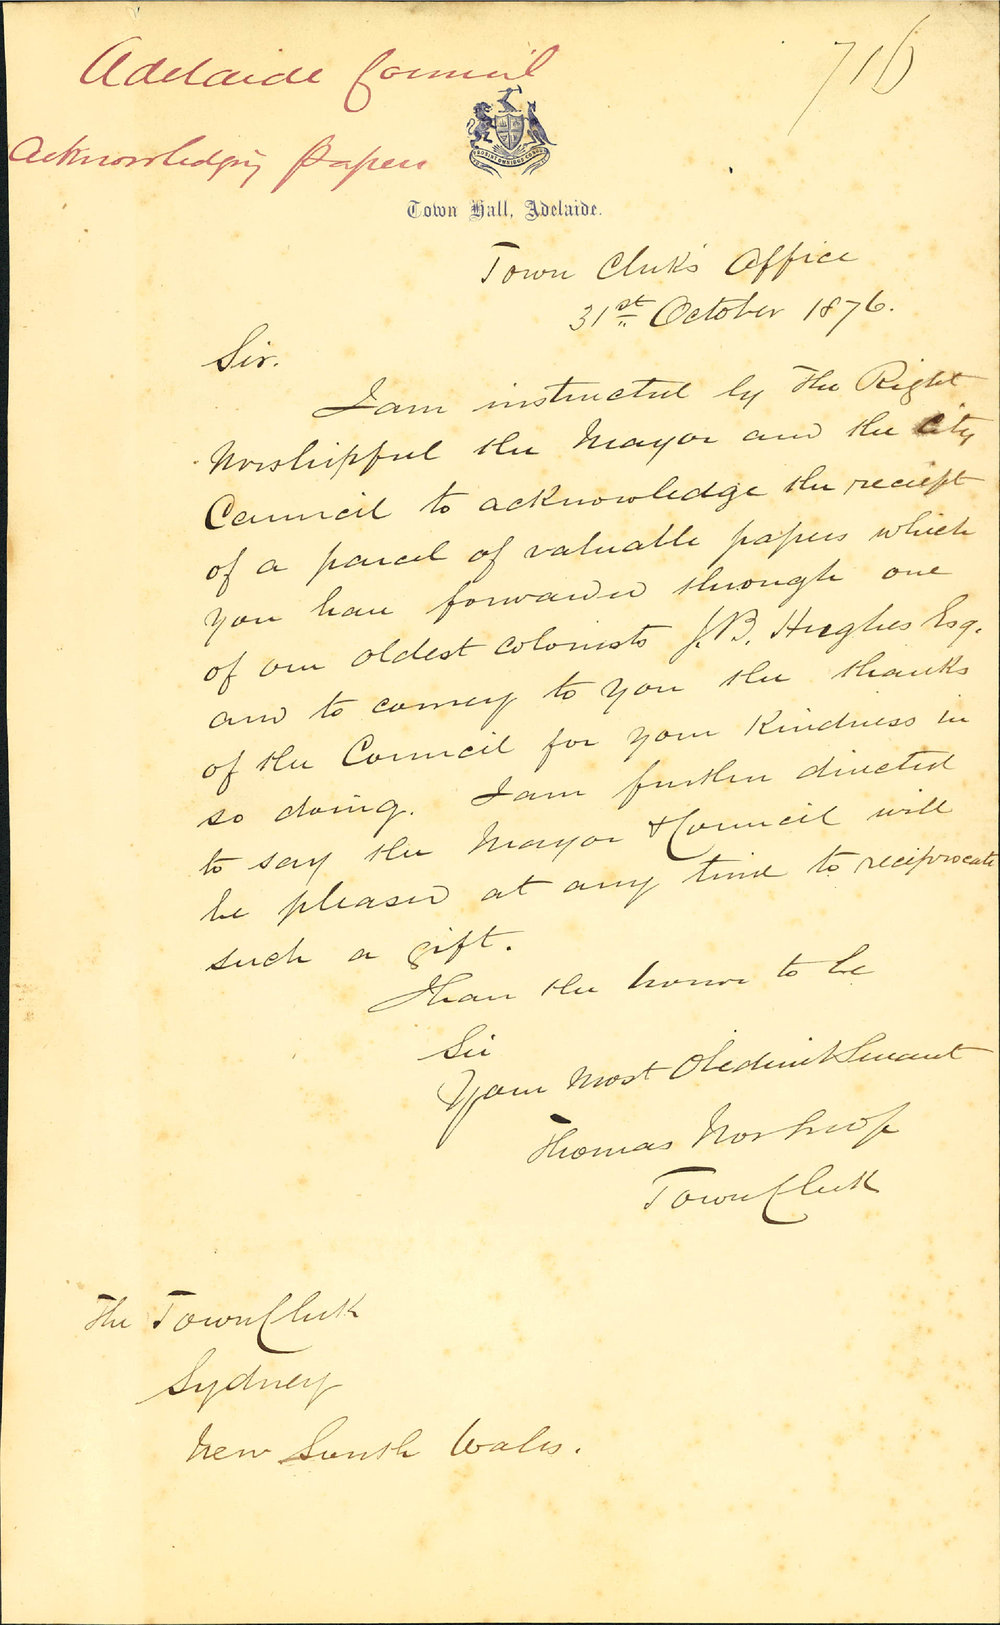 Adelaide Council
716
Acknowledging Papers
Town Hall, Adelaide.
Town Clerk's Office
31st October 1876.
Sir.
I am instructed by the Right
Worshipful the Mayor and the City
Council to acknowledge the reciept
of a parcel of valuable papers which
you have forwarded through one
of our oldest colonists J.B. Hughes Esq.
and to convey to you the thanks
of the Council for your kindness in
so doing. I am further directed
to say the Mayor & Council will
be pleased at any time to reciprocate
such a gift.
I have the honor to be
Sir
Your Most Obedient Servant
Thomas Worsnop
Town Clerk
The Town Clerk
Sydney
New South Wales.